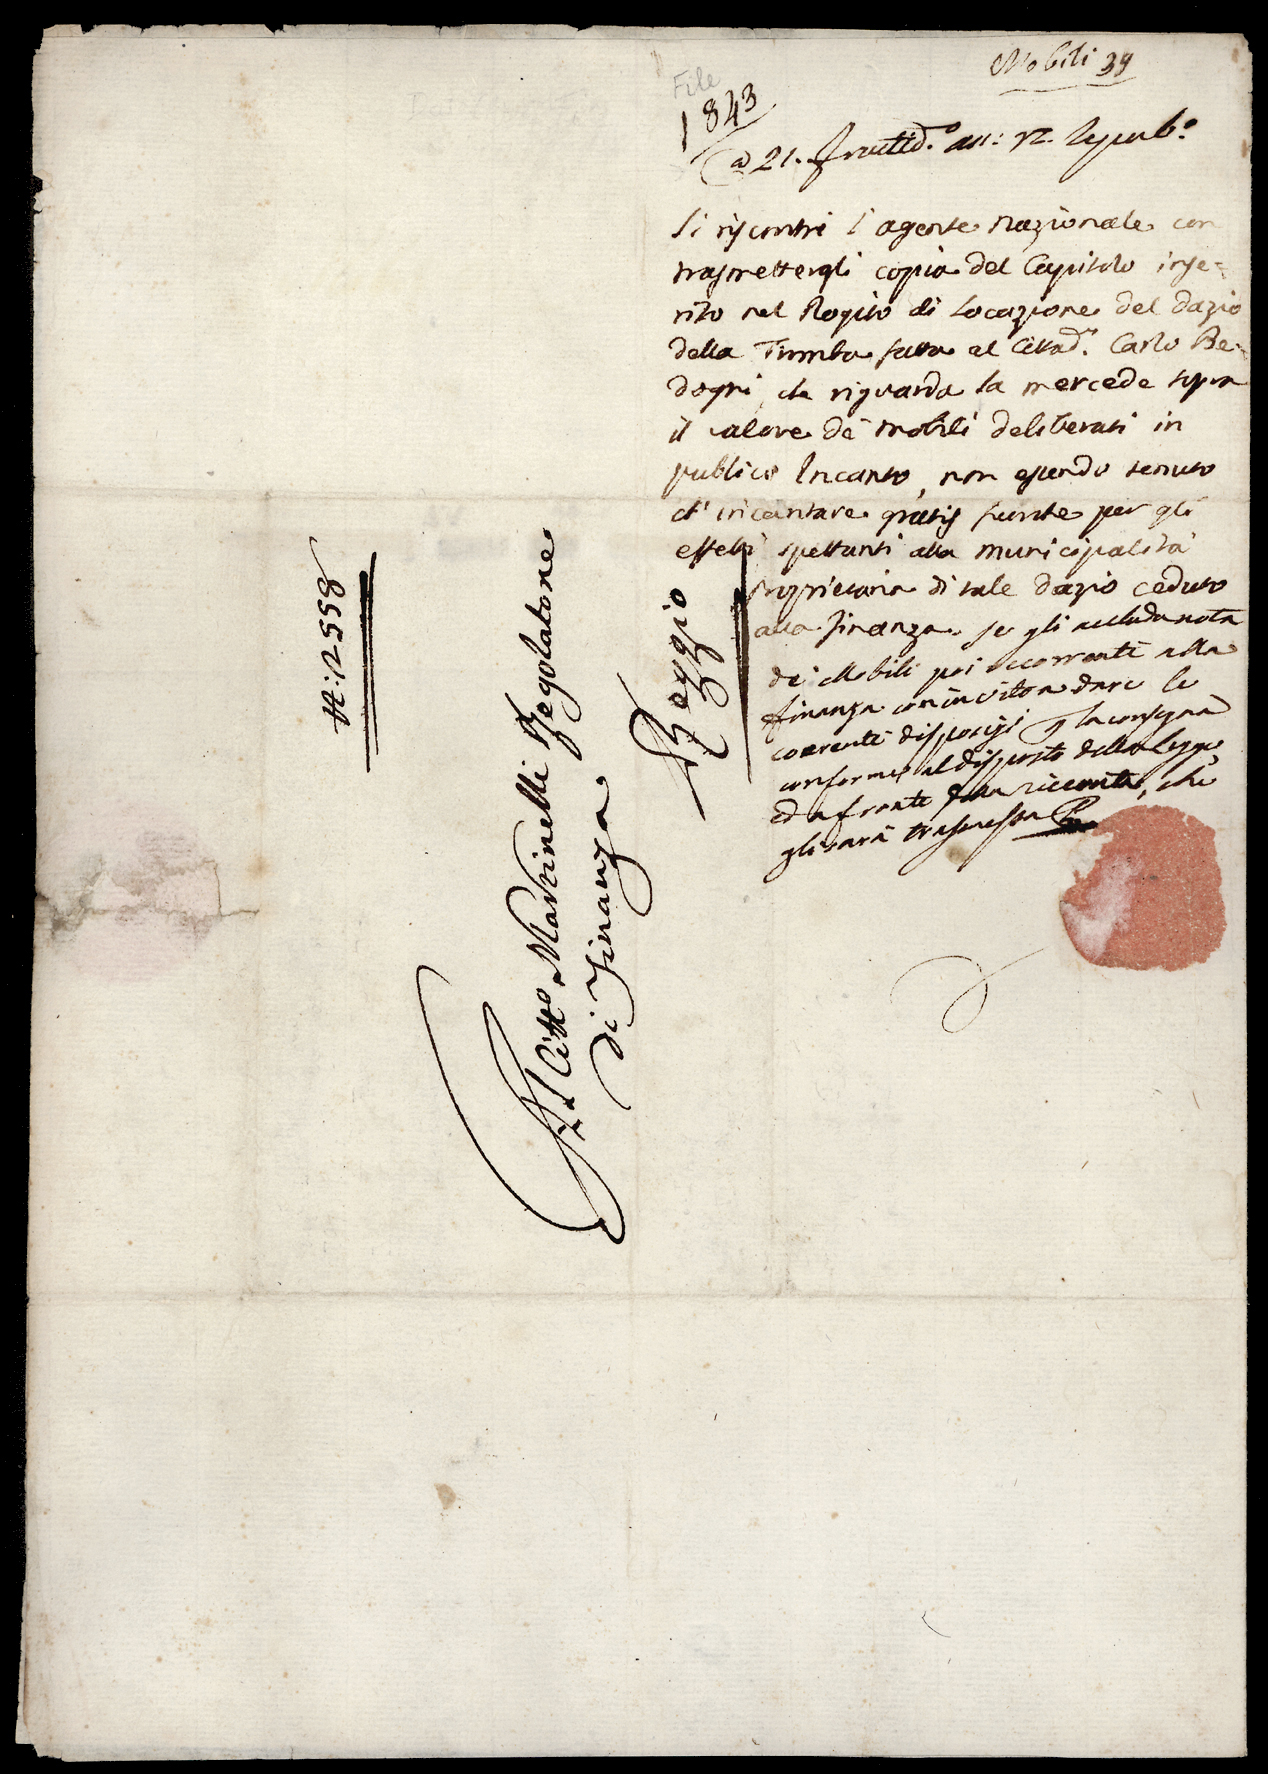 Mobili 39
File
1843
a 21. fruttid.º an: VI. Repub.º
Si riscontri l'agente Nazionale con
trasmettergli copia del Capitolo inse=
rito nel Rogito di Locazione del dazio
della Tromba fatta al Cittad.º Carlo Be=
dogni, che riguarda la mercede sopra
il valore de' mobili deliberati in
publico Incanto, non essendo tenuto
d'incantare gratis senonche per gli
effetti spettanti alla Municipalità
proprietaria di tale dazio ceduto
alla finanza. Se gli accluda nota
de' Mobili poi occorrenti alla
finanza con invito a dare le
correnti disposizi per la consegna
conforme al disposto della Legge,
ed a fronte della ricevuta, che
gli sarà trasmessa
Al Citt.º Martinelli Regolatore
di Finanza
Reggio
N: 2558